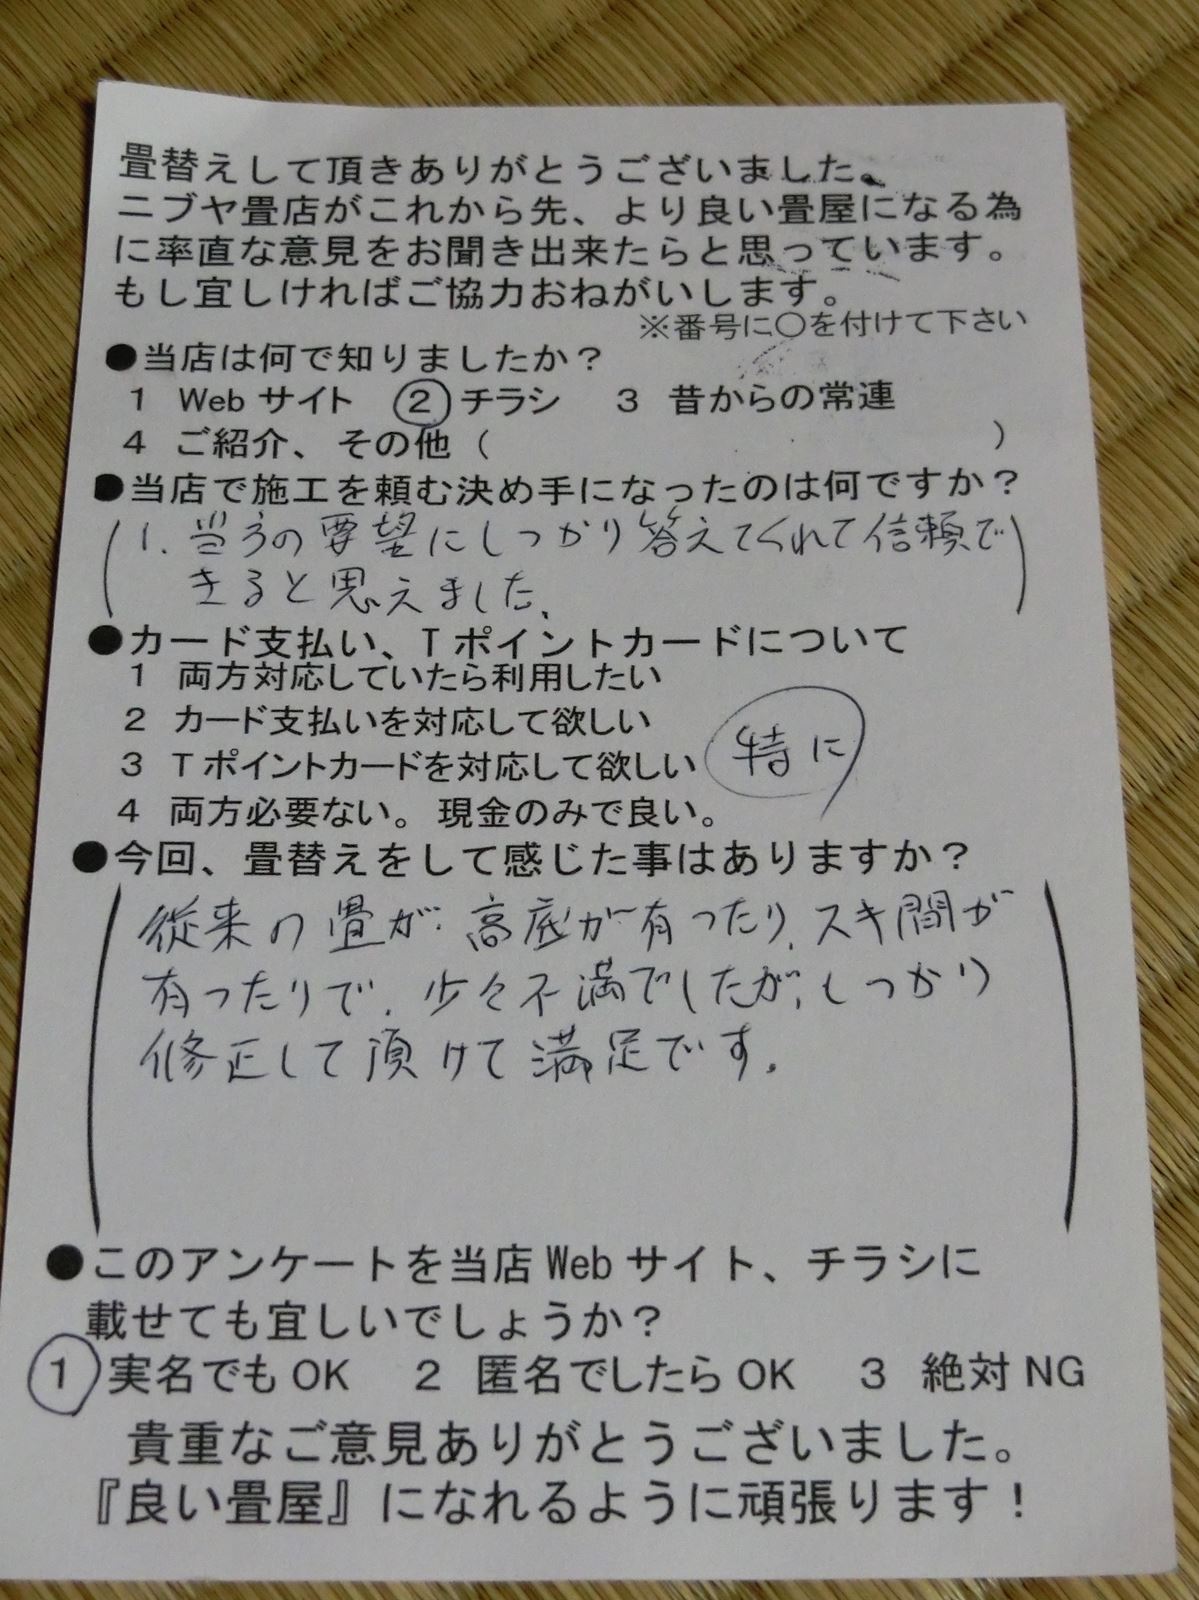 畳替えして頂きありがとうございました。
ニブヤ畳店がこれから先、より良い畳屋になる為
に率直な意見をお聞き出来たらと思っています。
もし宜しければご協力おねがいします。
※番号に〇を付けて下さい
●当店は何で知りましたか?
1 Webサイト ②チラシ 3 昔からの常連
4 ご紹介、その他( )
●当店で施工を頼む決め手になったのは何ですか?
(1. 当方の要望にしっかり答えてくれて信頼で
きると思えました、)
●カード支払い、Tポイントカードについて
1 両方対応していたら利用したい
2 カード支払いを対応して欲しい
3 Tポイントカードを対応して欲しい 特に
4 両方必要ない。現金のみで良い。
●今回、畳替えをして感じた事はありますか?
(従来の畳が、高底が有ったり、スキ間が
有ったりで、少々不満でしたが、しっかり
修正して頂けて満足です。)
●このアンケートを当店Webサイト、チラシに
載せても宜しいでしょうか?
① 実名でもOK 2 匿名でしたらOK 3 絶対NG
貴重なご意見ありがとうございました。
『良い畳屋』になれるように頑張ります!